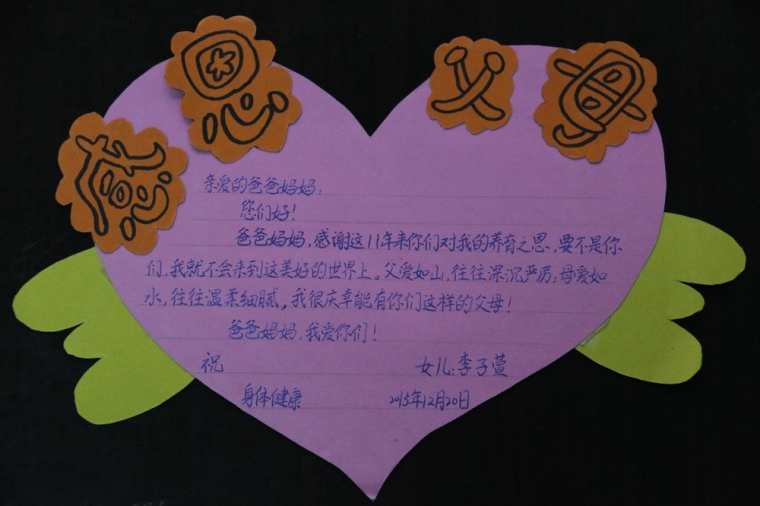 感恩父母
亲爱的爸爸妈妈：
您们好！
爸爸妈妈，感谢这11年来你们对我的养育之恩，要不是你
们，我就不会来到这美好的世界上。父爱如山，往往深沉严厉；母爱如
水，往往温柔细腻。我很庆幸能有你们这样的父母！
爸爸妈妈，我爱你们！
祝
女儿：李子萱
身体健康
2015年12月20日